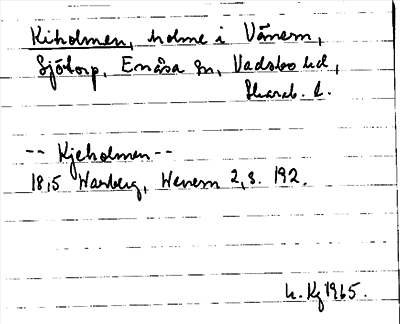 Kiholmen, holme i Vänern,
Sjötorp, Enåsa sn, Vadsbo hd,
Skarab. l.
-- Kjeholmen --
1815 Warberg, Wenern 2, s. 192.
h. Kg 1965.